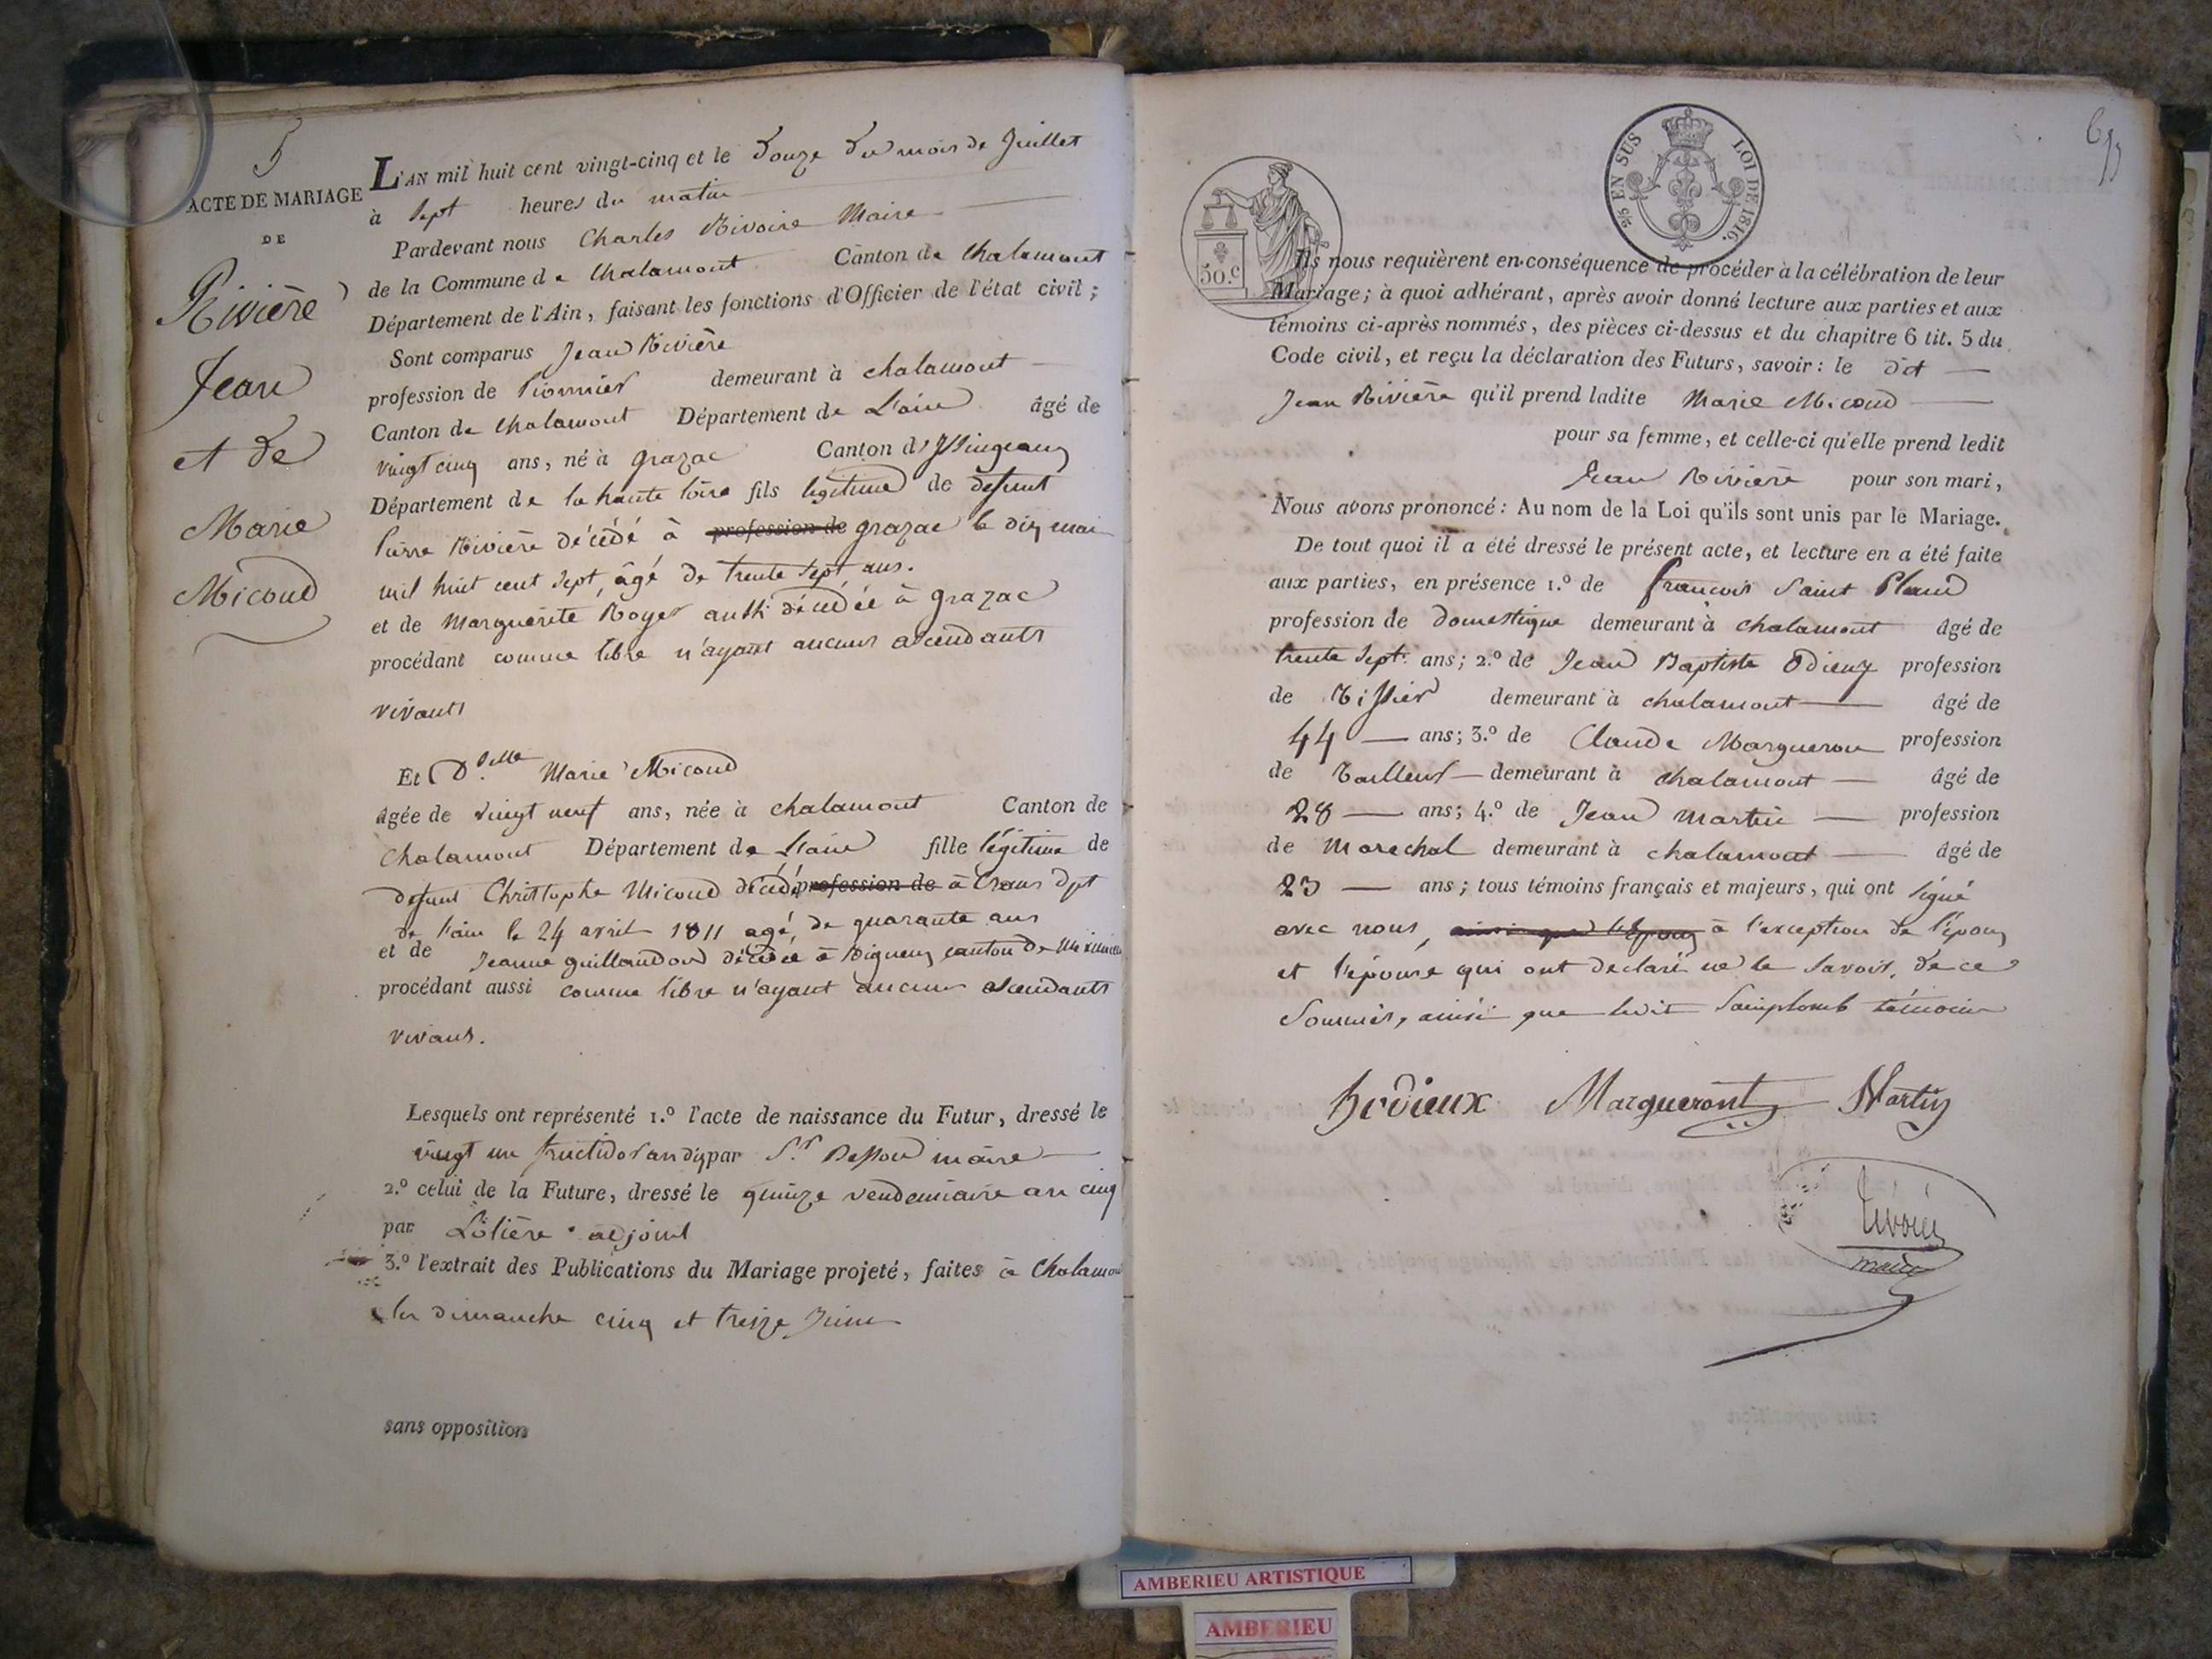 5
ACTE DE MARIAGE
DE
Rivière
Jean
et de
Marie
Micoud
L'AN mil huit cent vingt-cinq et le Douze du mois de Juillet
à Sept heures du matin
Pardevant nous Charles Rivoire Maire
de la Commune de Chalamont Canton de Chalamont
Département de l'Ain, faisant les fonctions d'Officier de l'état civil ;
Sont comparus Jean Rivière
profession de Pionnier demeurant à chalamont
Canton de Chalamont Département de L'ain âgé de
vingt cinq ans, né à grazac Canton d'Issingeaux
Département de la haute loire fils légitime de defunt
Pierre Rivière décédé à profession de grazac le dix mai
mil huit cent Sept, âgé de trente Sept ans.
et de Marguerite Royer aussi décédée à grazac
procédant comme libre n'ayant aucuns ascendants
vivants
Et D.elle Marie Micoud
âgée de vingt neuf ans, née à chalamont Canton de
Chalamont Département de L'ain fille légitime de
defunt Christophe Micoud décédé profession de à Crans dpt
de l'ain le 24 avril 1811 agé, de quarante ans
et de Jeanne guillaudon décédée à Rigneux canton de
procédant aussi comme libre n'ayant aucuns ascendants
vivans.
Lesquels ont représenté 1.º l'acte de naissance du Futur, dressé le
vingt un fructidor an dix par S.r maire
2.º celui de la Future, dressé le quinze vendemiaire an cinq
par Lotière adjoint
3.º l'extrait des Publications du Mariage projeté, faites à Chalamont
les dimanche cinq et treize Juin
sans opposition
2/5 EN SUS LOI DE 1816.
50.c
Ils nous requièrent en conséquence de procéder à la célébration de leur
Mariage ; à quoi adhérant, après avoir donné lecture aux parties et aux
témoins ci-après nommés, des pièces ci-dessus et du chapitre 6 tit. 5 du
Code civil, et reçu la déclaration des Futurs, savoir : le dit
Jean Rivière qu'il prend ladite Marie Micoud
pour sa femme, et celle-ci qu'elle prend ledit
Jean Rivière pour son mari,
Nous avons prononcé : Au nom de la Loi qu'ils sont unis par le Mariage.
De tout quoi il a été dressé le présent acte, et lecture en a été faite
aux parties, en présence 1.º de françois Saint Plomd
profession de domestique demeurant à chalamont âgé de
trente Sept ans ; 2.º de Jean Baptiste Odieux profession
de Tissier demeurant à chalamont âgé de
44 ans ; 3.º de Claude Margueron profession
de Tailleur demeurant à chalamont âgé de
28 ans ; 4.º de Jean Martin profession
de Marechal demeurant à chalamont âgé de
23 ans ; tous témoins français et majeurs, qui ont signé
avec nous, ainsi que l'Epoux à l'exception de l'époux
et l'épouse qui ont déclaré ne le savoir, de ce
Sommés, ainsi que ledit Sainplomb témoin
hodieux Margueront Martin
Rivoire
maire
AMBERIEU ARTISTIQUE
AMBERIEU